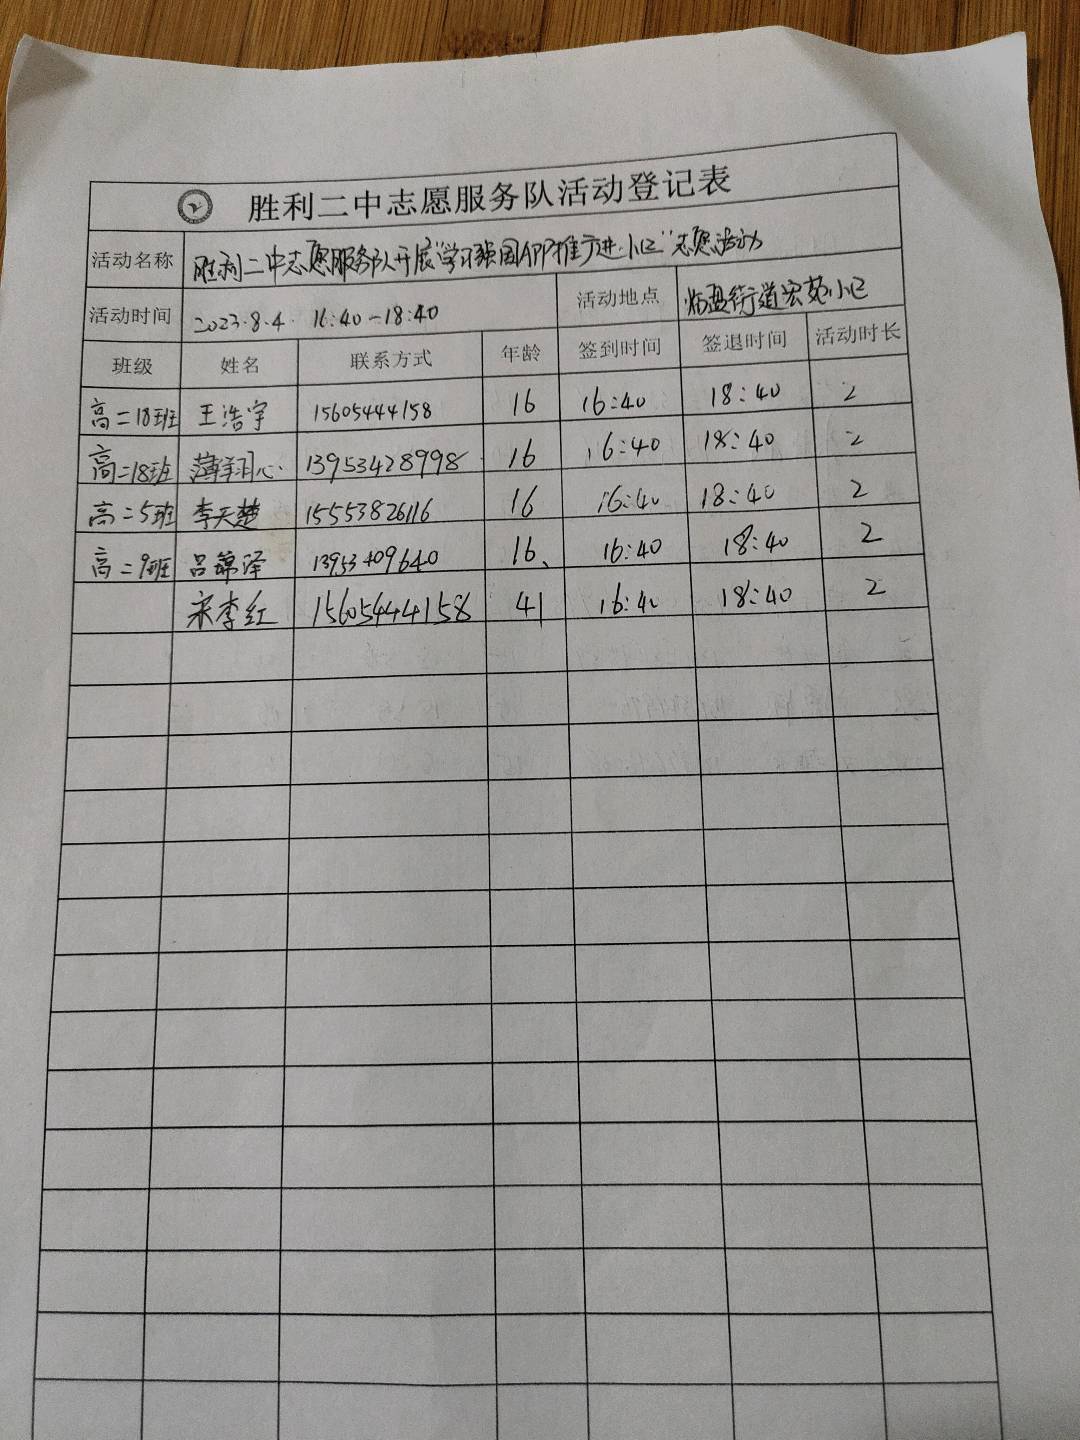 胜利二中志愿服务队活动登记表
活动名称 胜利二中志愿服务队开展"学习强国APP推广进小区"志愿活动
活动时间 2023.8.4. 16:40-18:40 活动地点 临盘街道宏苑小区
班级 姓名 联系方式 年龄 签到时间 签退时间 活动时长
高二18班 王浩宇 15605444158 16 16:40 18:40 2
高二18班 薄羽心 13953428998 16 16:40 18:40 2
高二5班 李天楚 15553826116 16 16:40 18:40 2
高二9班 吕锦泽 13953409640 16、 16:40 18:40 2
宋李红 15605444158 41 16:40 18:40 2